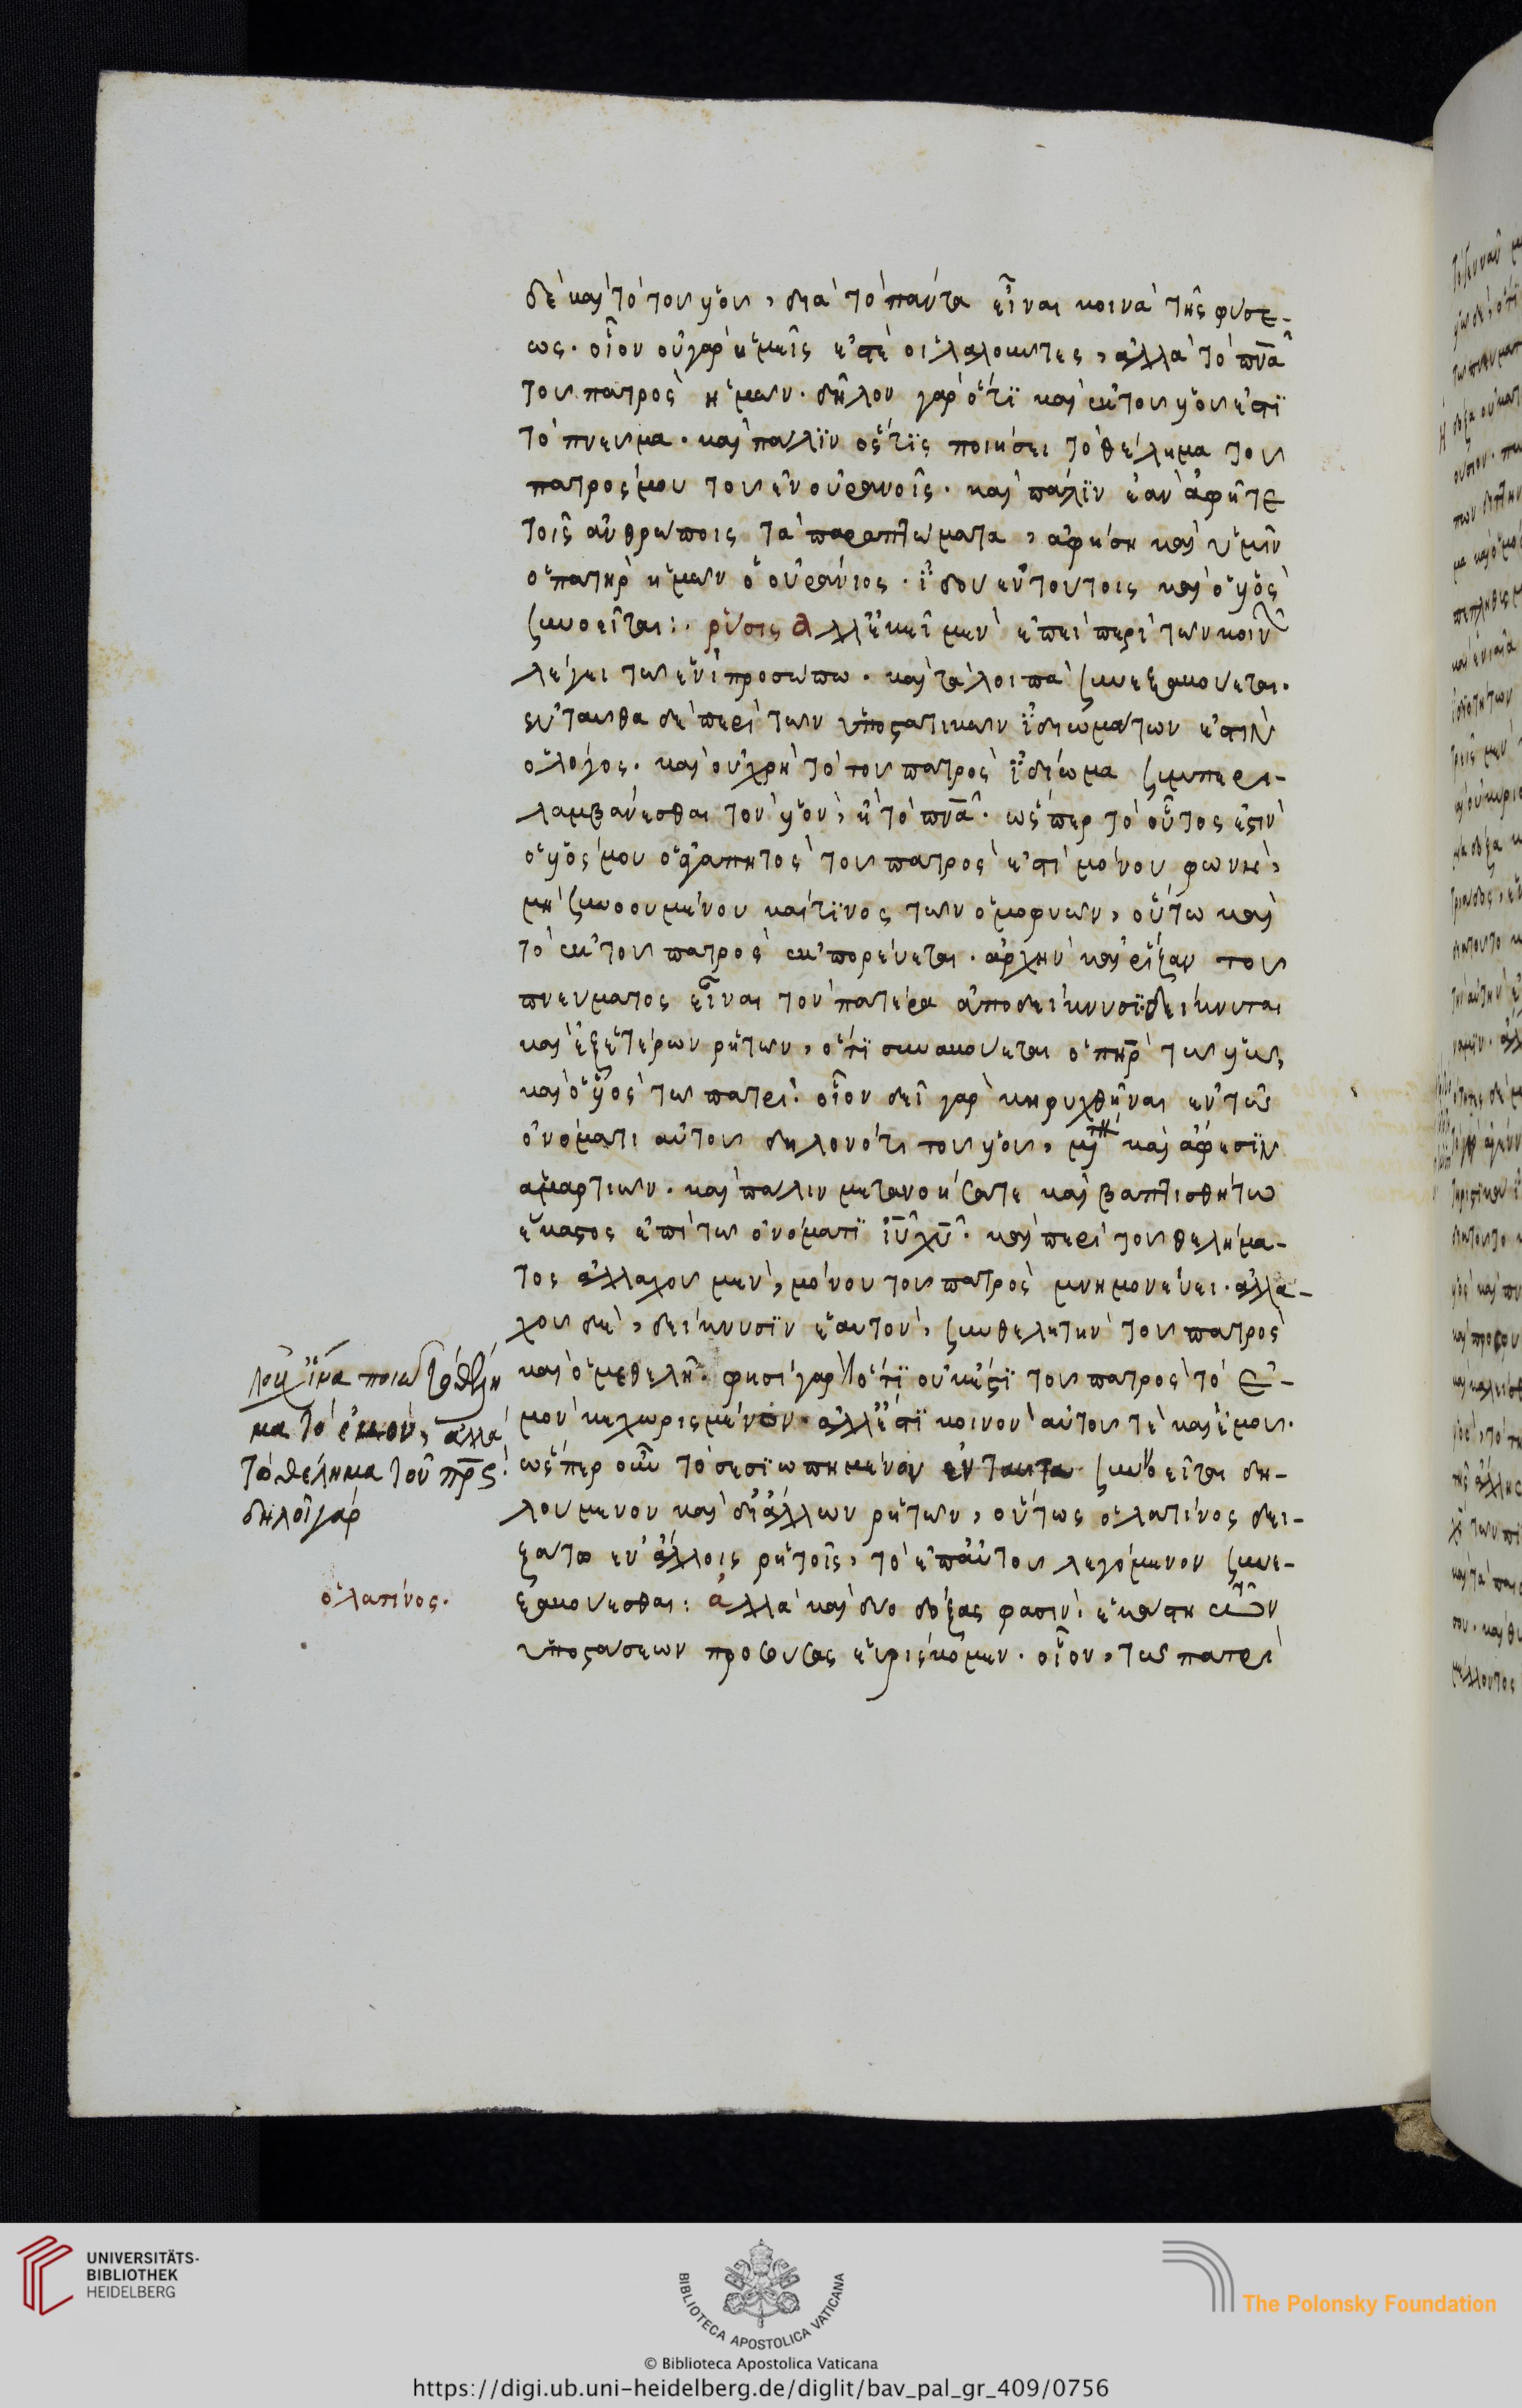 δὲ καὶ τὸ τοῦ υἱοῦ, διὰ τὸ πάντα εἶναι κοινὰ τῆς φύσε-
ως. οἷον οὐ γὰρ ὑμεῖς ἐστὲ οἱ λαλοῦντες, ἀλλὰ τὸ πνᾶ
τοῦ πατρὸς ἡμῶν. δῆλον γὰρ ὅτι καὶ ἐκ τοῦ υἱοῦ ἐστὶ
τὸ πνεῦμα. καὶ πάλιν ὅς τις ποιήσει τὸ θέλημα τοῦ
πατρός μου τοῦ ἐν οὐρανοῖς. καὶ πάλιν ἐὰν ἀφῆτε
τοῖς ἀνθρώποις τὰ παραπτώματα, ἀφήση καὶ ὑμῖν
ὁ πατὴρ ἡμῶν ὁ οὐράνιος. ἰδοὺ ἐν τούτοις καὶ ὁ υἱὸς
συννοεῖται: ῥύσις ἀλλ' ἐκεῖ μὲν ἐπεὶ περὶ τῶν κοιν
λέγει τῶ ἑνὶ προσώπω. καὶ τὰ λοιπὰ συνεξακούεται.
ἐνταῦθα δὲ περὶ τῶν ὑποστατικῶν ἰδιωμάτων ἐστὶν
ὁ λόγος. καὶ οὐ χρὴ τὸ τοῦ πατρὸς ἰδίωμα συμπερι-
λαμβάνεσθαι τὸν υἱὸν, ἢ τὸ πνᾶ. ὥς περ τὸ οὗτος ἐστὶν
ὁ υἱός μου ὁ ἀγαπητὸς τοῦ πατρὸς ἐστὶ μόνου φωνὴ,
μὴ συννοουμένου καί τινος τῶν ὁμοφυῶν, οὕτω καὶ
τὸ ἐκ τοῦ πατρὸς ἐκπορεύεται. ἀρχὴν καὶ ῥίζαν τοῦ
πνεύματος εἶναι τὸν πατέρα ἀποδείκνυσι. δείκνυται
καὶ ἐξ ἑτέρων ῥητῶν, ὅτι συνακούεται ὁ πηρ τῶ υἱῶ,
καὶ ὁ υἱὸς τῶ πατρί. οἷον δεῖ γὰρ κηρυχθῆναι ἐν τῶ
ὀνόματι αὐτοῦ δηλονότι τοῦ υἱοῦ, καὶ ἄφεσιν
ἁμαρτιῶν. καὶ πάλιν μετανοήσατε καὶ βαπτισθήτω
ἕκαστος ἐπὶ τῶ ὀνόματι ἰῦ χῦ. καὶ περὶ τοῦ θελήμα-
τος ἀλλαχοῦ μὲν, μόνου τοῦ πατρὸς μνημονεύει. ἀλλα-
χοῦ δὲ, δείκνυσιν ἑαυτὸν, συνθελητὴν τοῦ πατρὸς
καὶ θελη. φησὶ γὰρ ὅτι οὐκ ἔστι τοῦ πατρὸς τὸ ἐ-
μὸν κεχωρισμένον. ἀλλ' ἐστὶ κοινὸν αὐτοῦ τὲ καὶ ἐμοῦ.
ὥς περ οὖν τὸ σεσιωπημένον ἐν ταῦτα συννοεῖται δη-
λούμενον καὶ δι' ἄλλων ῥητῶν, οὕτως ὁ λατῖνος δει-
ξάτω ἐν ἄλλοις ῥητοῖς, τὸ ἐπ' αὐτοῦ λεγόμενον συνε-
ξακούεσθαι: ἀλλὰ καὶ δύο δόξας φασιν. ἑκάστη τῶν
ὑποστάσεων προσούσας εὑρίσκομεν. οἷον, τῶ πατρὶ
ἵνα ποιῶ τὸ θέλη
μα τὸ ἐμὸν, ἀλλὰ
τὸ θέλημα τοῦ πρς.
δηλοῖ γὰρ
ὁ λατῖνος.
UNIVERSITÄTS-
BIBLIOTHEK
HEIDELBERG
BIBLIOTECA APOSTOLICA VATICANA
The Polonsky Foundation
© Biblioteca Apostolica Vaticana
https://digi.ub.uni-heidelberg.de/diglit/bav_pal_gr_409/0756